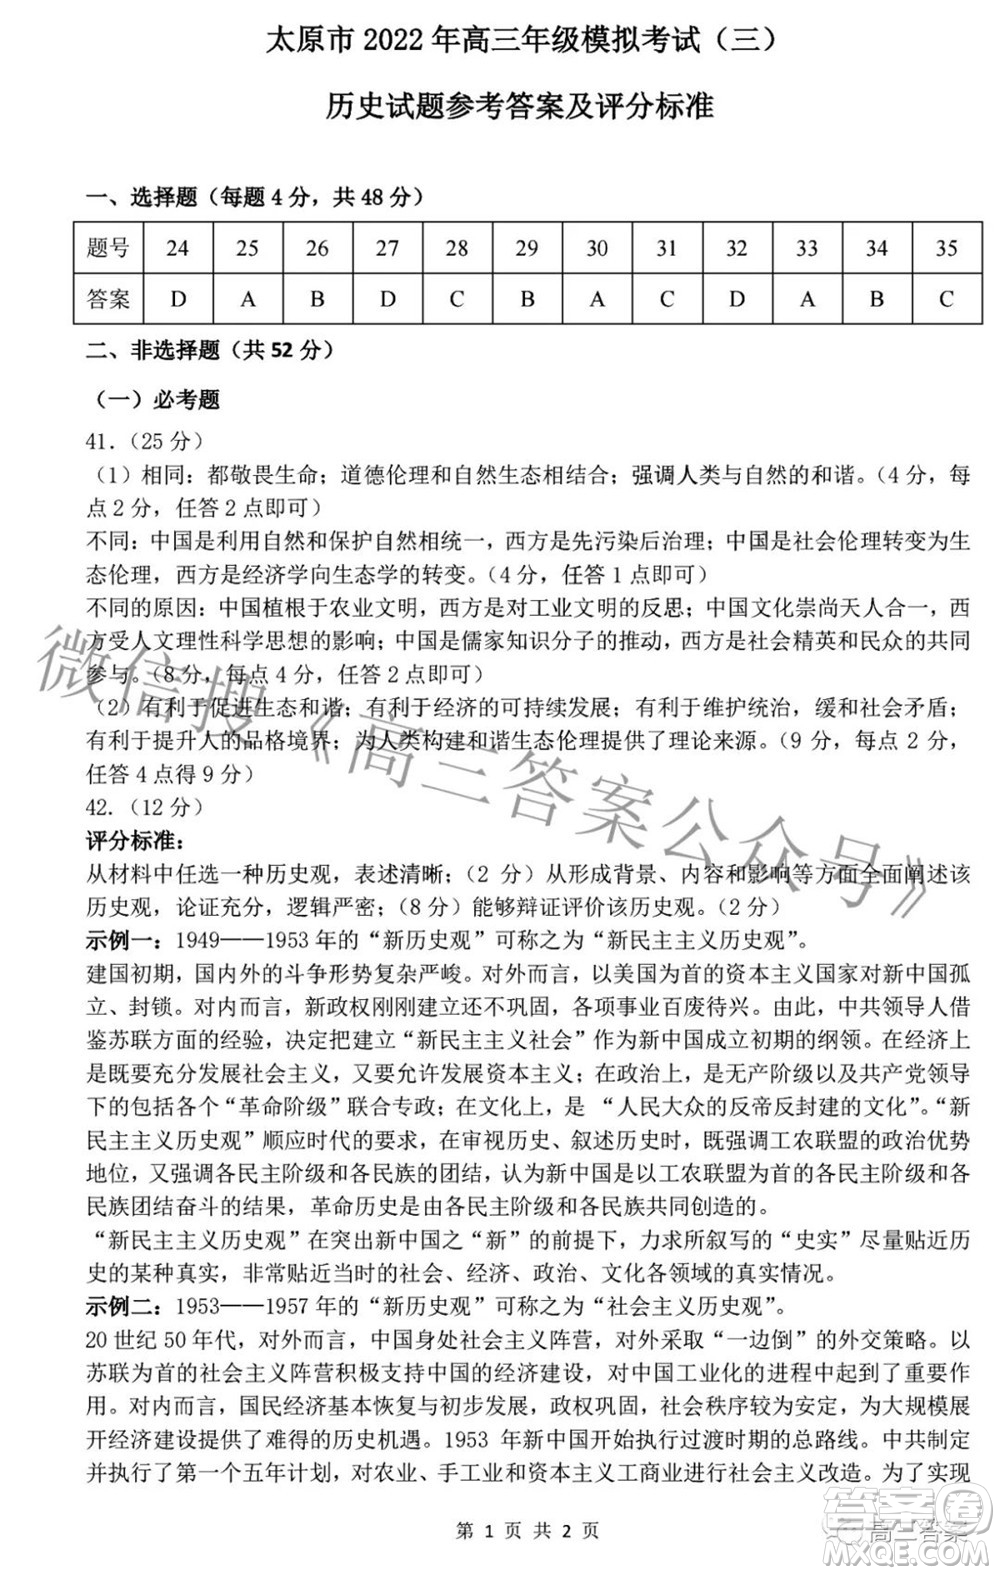 太原市 2022 年高三年级模拟考试（三）
历史试题参考答案及评分标准
一、选择题（每题 4 分，共 48 分）
题号 24 25 26 27 28 29 30 31 32 33 34 35
答案 D A B D C B A C D A B C
二、非选择题（共 52 分）
（一）必考题
41.（25 分）
（1）相同：都敬畏生命；道德伦理和自然生态相结合；强调人类与自然的和谐。（4 分，每
点 2 分，任答 2 点即可）
不同：中国是利用自然和保护自然相统一，西方是先污染后治理；中国是社会伦理转变为生
态伦理，西方是经济学向生态学的转变。（4 分，任答 1 点即可）
不同的原因：中国植根于农业文明，西方是对工业文明的反思；中国文化崇尚天人合一，西
方受人文理性科学思想的影响；中国是儒家知识分子的推动，西方是社会精英和民众的共同
参与。（8 分，每点 4 分，任答 2 点即可）
（2）有利于促进生态和谐；有利于经济的可持续发展；有利于维护统治，缓和社会矛盾；
有利于提升人的品格境界；为人类构建和谐生态伦理提供了理论来源。（9 分，每点 2 分，
任答 4 点得 9 分）
42.（12 分）
评分标准：
从材料中任选一种历史观，表述清晰；（2 分）从形成背景、内容和影响等方面全面阐述该
历史观，论证充分，逻辑严密；（8 分）能够辩证评价该历史观。（2 分）
示例一：1949——1953 年的“新历史观”可称之为“新民主主义历史观”。
建国初期，国内外的斗争形势复杂严峻。对外而言，以美国为首的资本主义国家对新中国孤
立、封锁。对内而言，新政权刚刚建立还不巩固，各项事业百废待兴。由此，中共领导人借
鉴苏联方面的经验，决定把“新民主主义社会”作为新中国成立初期的纲领。在经济上
既要充分发展社会主义，又要允许发展资本主义；在政治上，是无产阶级以及共产党领导
下的包括各个“革命阶级”联合专政；在文化上，是 “人民大众的反帝反封建的文化”。“新
民主主义历史观”顺应时代的要求，在审视历史、叙述历史时，既强调工农联盟的政治优势
地位，又强调各民主阶级和各民族的团结，认为新中国是以工农联盟为首的各民主阶级和各
民族团结奋斗的结果，革命历史是由各民主阶级和各民族共同创造的。
“新民主主义历史观”在突出新中国之“新”的前提下，力求所叙写的“史实”尽量贴近历
史的某种真实，非常贴近当时的社会、经济、政治、文化各领域的真实情况。
示例二：1953——1957 年的“新历史观”可称之为“社会主义历史观”。
20 世纪 50 年代，对外而言，中国身处社会主义阵营，对外采取“一边倒”的外交策略。以
苏联为首的社会主义阵营积极支持中国的经济建设，对中国工业化的进程中起到了重要作
用。对内而言，国民经济基本恢复与初步发展，政权巩固，社会秩序较为安定，为大规模展
开经济建设提供了难得的历史机遇。1953 年新中国开始执行过渡时期的总路线。中共制定
并执行了第一个五年计划，对农业、手工业和资本主义工商业进行社会主义改造。为了实现
第 1 页 共 2 页
微信搜《高三答案公众号》
高三答案
答案圈
MXQE.COM